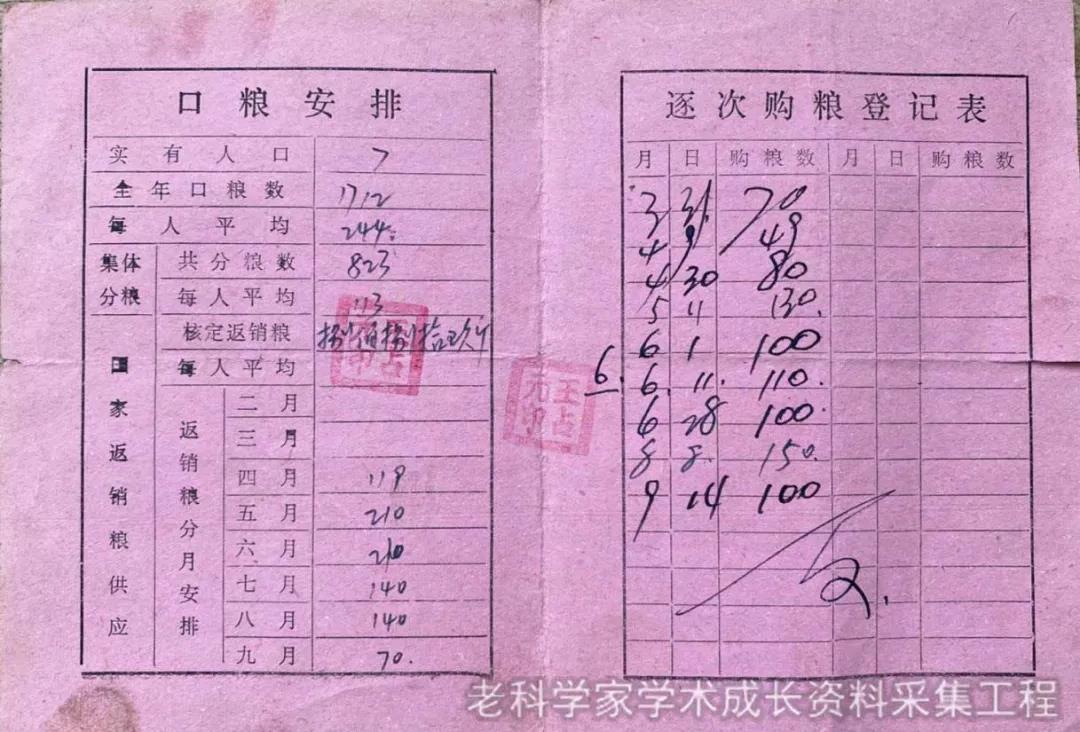 口粮安排
实有人口 7
全年口粮数 1712
每人平均 244.
集体分粮 共分粮数 823
每人平均 113
国家返销粮供应 核定返销粮 捌佰捌拾玖斤
每人平均
返销粮分月安排 二月
三月
四月 119
五月 210
六月 210
七月 140
八月 140
九月 70.
逐次购粮登记表
月 日 购粮数 月 日 购粮数
3 31 70
4 9 49
4 30 80
5 11 130.
6 1 100
6. 6. 11. 110.
6 28 100
8 8. 150.
9 14 100
王占元印
王占元印
老科学家学术成长资料采集工程